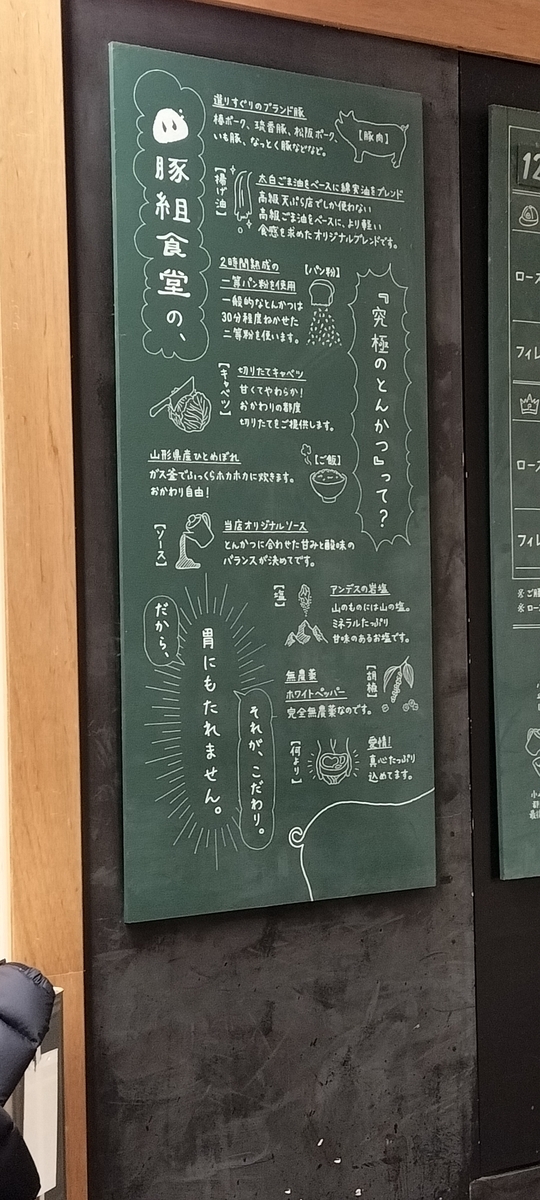 豚組食堂の、
『究極のとんかつ』って？
選りすぐりのブランド豚
椿ポーク、琉香豚、松阪ポーク、
いも豚、なっとく豚などなど。
【豚肉】
【揚げ油】
太白ごま油をベースに綿実油をブレンド
高級天ぷら店でしか使わない
高級ごま油をベースに、より軽い
食感を求めたオリジナルブレンドです。
【パン粉】
2時間熟成の
一等パン粉を使用
一般的なとんかつは
30分程度ねかせた
二等粉を使います。
【キャベツ】
切りたてキャベツ
甘くてやわらか！
おかわりの都度
切りたてをご提供します。
【ご飯】
山形県産ひとめぼれ
ガス釜でふっくらホカホカに炊きます。
おかわり自由！
【ソース】
当店オリジナルソース
とんかつに合わせた甘みと酸味の
バランスが決めてです。
【塩】
アンデスの岩塩
山のものには山の塩。
ミネラルたっぷり
甘味のあるお塩です。
【胡椒】
無農薬
ホワイトペッパー
完全無農薬なのです。
【何より】
愛情！
真心たっぷり
込めてます。
だから、
胃にもたれません。
それが、こだわり。
12
ロース
フィレ
ロース
フィレ